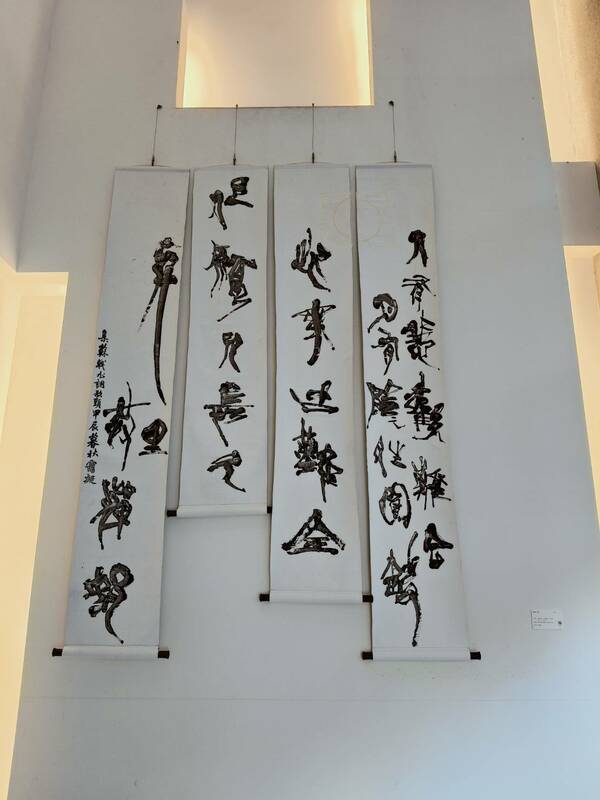 人有悲歡離合
月有陰晴圓缺
此事古難全
但願人長久
千里共嬋娟
蘇軾水調歌頭甲辰暮秋